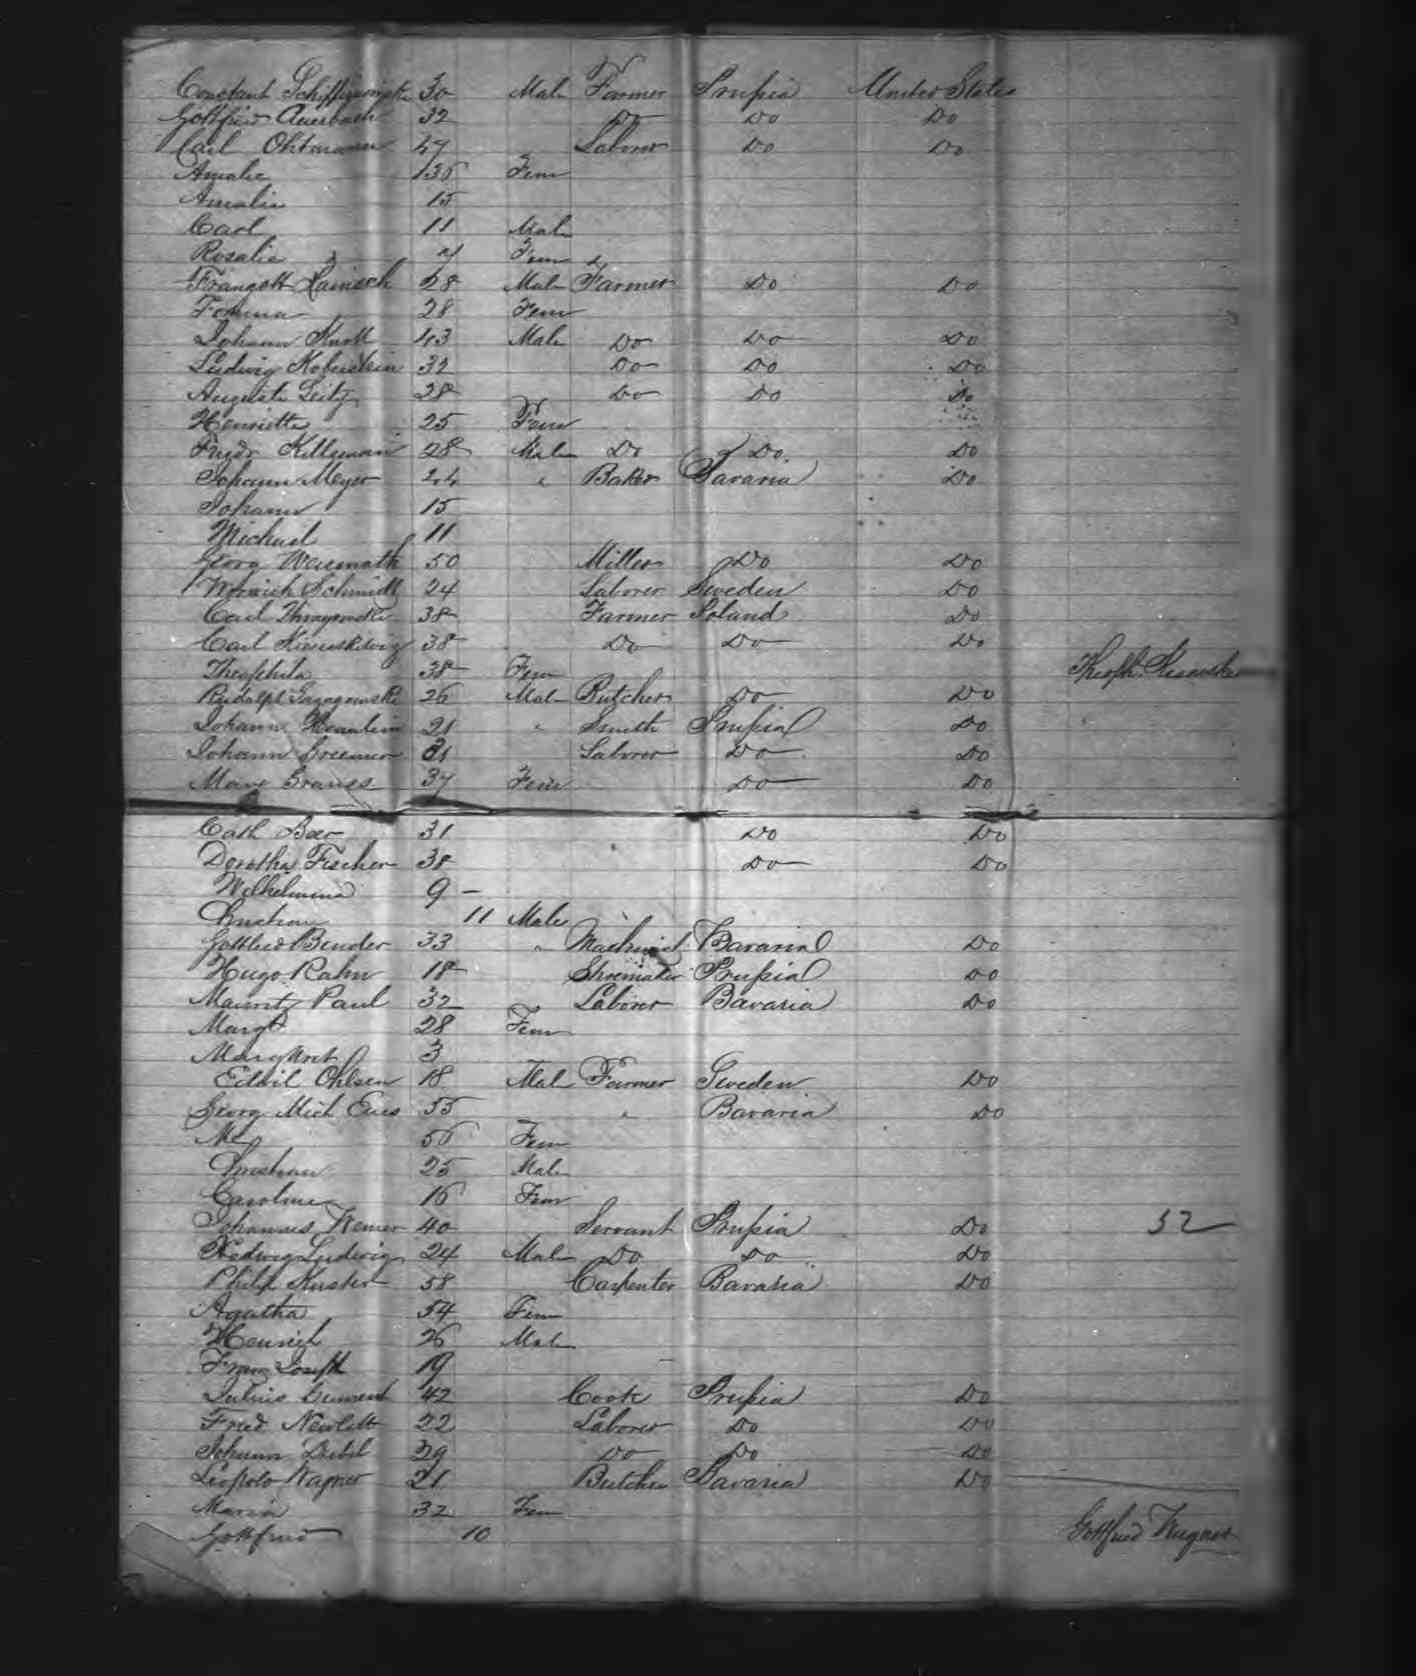 Constant 30 Male Farmer Prussia United States
Gottfried Auerbach 32 Do Do Do
Carl Ohtmann 47 Laborer Do Do
Amalie 36 Fem
Amalie 15
Carl 11 Male
Rosalie 7 Fem
Hainsch 28 Male Farmer Do Do
28 Fem
Johann Knoll 43 Male Do Do Do
Ludwig Koberstein 32 Do Do Do
August Seitz 28 Do Do Do
Henriette 25 Fem
Friedr Killgman 28 Male Do Do Do
Johann Meyer 24 " Baker Bavaria Do
Johann 15
Michael 11
Georg 50 Miller Do Do
Schmidt 24 Laborer Sweden Do
Carl 38 Farmer Poland Do
Carl 38 Do Do Do
Theophila 38 Fem Theoph.
Rudolph 26 Male Butcher Do Do
Johann 21 " Smith Prussia Do
Johann 31 Laborer Do Do
37 Fem Do Do
Cath Beer 31 Do Do
Dorothea Fischer 38 Do Do
Wilhelmina 9 —
Christian 11 Male
Gottlieb Bender 33 " Machinist Bavaria Do
Hugo Rahn 18 Shoemaker Prussia Do
Mauritz Paul 32 Laborer Bavaria Do
Margt 28 Fem
Margaret 3
Ohlsen 18 Male Farmer Sweden Do
Georg Mich 55 " Bavaria Do
56 Fem
Christian 25 Male
Caroline 16 Fem
Johannes 40 Servant Prussia Do 52
Ludwig 24 Male Do Do Do
Philip Kuster 58 Carpenter Bavaria Do
Agatha 54 Fem
Heinrich 26 Male
Franz Joseph 19
Julius 42 Cook Prussia Do
Fried 22 Laborer Do Do
Johann 29 Do Do Do
Leopold Wagner 21 Butcher Bavaria Do
Maria 32 Fem
Gottfried 10 Gottfried Wagner